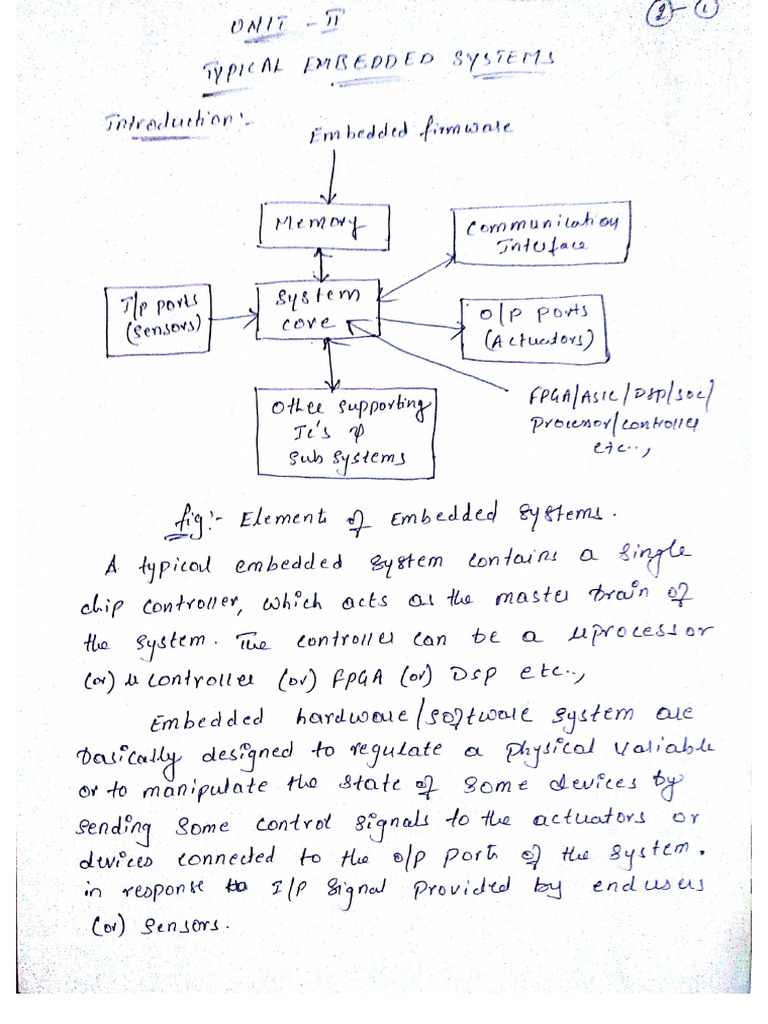 2-1
UNIT - II
TYPICAL EMBEDDED SYSTEMS
Introduction:-
Embedded firmware
Memory
Communication
Interface
I/p ports
(Sensors)
System
core
O/p ports
(Actuators)
FPGA/ASIC/DSP/SOC/
Processor/controller
etc..,
Other supporting
Ic's &
Sub Systems
fig:- Element of Embedded Systems.
A typical embedded system contains a single
chip controller, which acts as the master brain of
the system. The controller can be a µprocessor
(or) µ controller (or) FPGA (or) DSP etc..,
Embedded hardware/software system are
basically designed to regulate a physical variable
or to manipulate the state of some devices by
sending some control signals to the actuators or
devices connected to the o/p ports of the system.
in response to I/p signal provided by end users
(or) sensors.